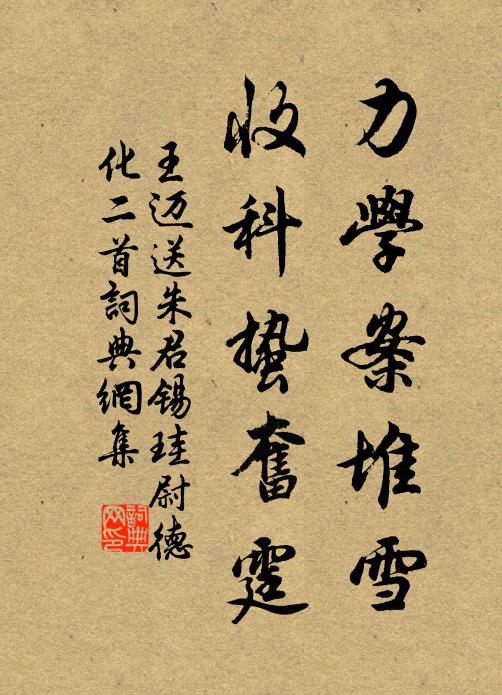 力學案堆雪
收科蟄奮霆
王迈送朱君锡珪尉德
化二首詞典網集
詞典網印